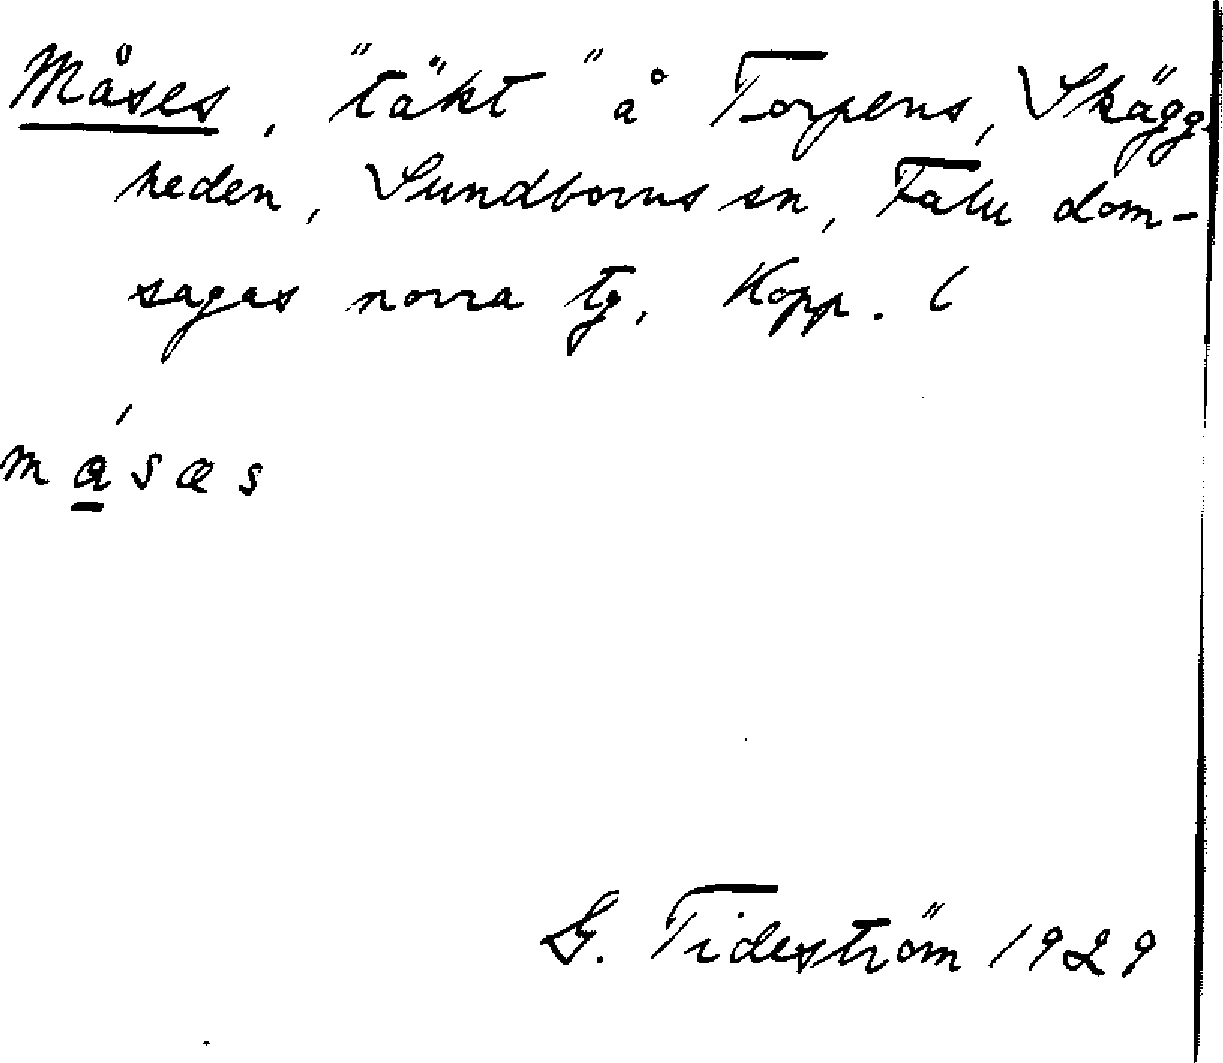 Måses, "täkt" å Torpens, Skägg-
heden, Sundborns sn, Falu dom-
sagas norra tg, Kopp. l
mǻ̱sæs
G. Tideström 1929